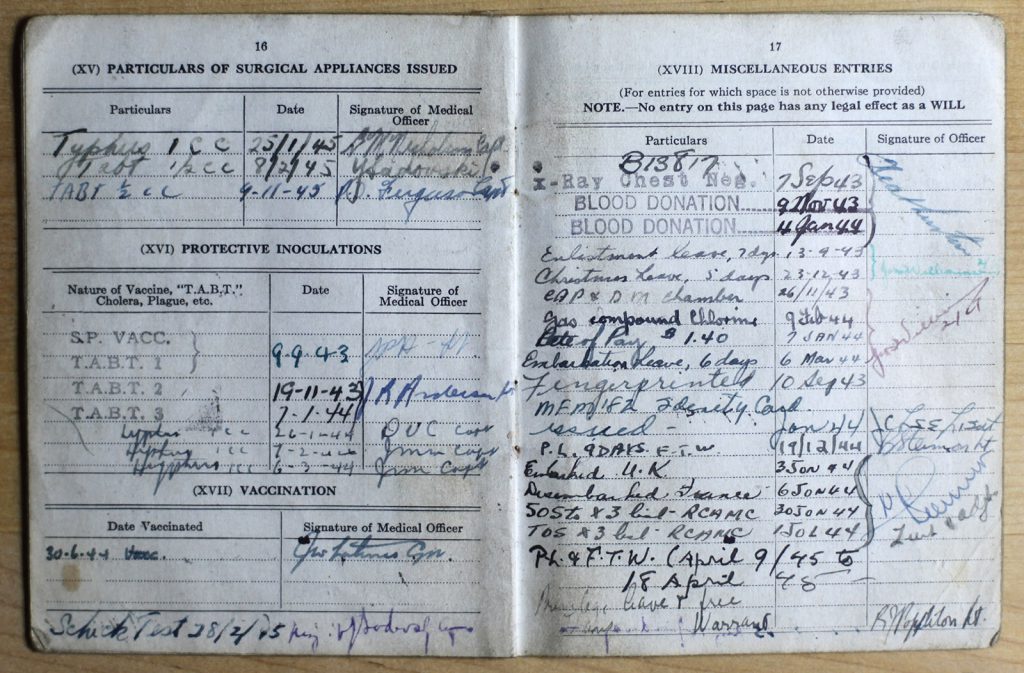 16
(XV) PARTICULARS OF SURGICAL APPLIANCES ISSUED
Particulars Date Signature of Medical Officer
Typhus 1 C C 25/1/45 Nicholson Capt
TABT 1/2 C C 8/2/45
TABT ½ CC 9-11-45 Ferguson Capt
(XVI) PROTECTIVE INOCULATIONS
Nature of Vaccine, "T.A.B.T." Cholera, Plague, etc. Date Signature of Medical Officer
S.P. VACC.
T.A.B.T. 1 9-9-43
T.A.B.T. 2 19-11-43 Anderson
T.A.B.T. 3 7-1-44
Typhus 1cc 26-1-44 Capt
Typhus 1cc 7-2-44 Capt
Typhus 1cc 6-3-44 Capt
(XVII) VACCINATION
Date Vaccinated Signature of Medical Officer
30-6-44 Vacc.
Schick Test 28/2/45
17
(XVIII) MISCELLANEOUS ENTRIES
(For entries for which space is not otherwise provided)
NOTE.—No entry on this page has any legal effect as a WILL
Particulars Date Signature of Officer
B13817
X-Ray Chest Neg. 7 Sep 43
BLOOD DONATION 9 Nov 43
BLOOD DONATION 4 Jan 44
Enlistment leave, 7 dys 13-9-43
Christmas leave, 5 days 23.12.43
CAP & D M chamber 26/11/43
Gas compound Chlorine 9 Feb 44
Rate of Pay $1.40 7 JAN 44
Embarkation leave, 6 days 6 Mar 44
Fingerprinted 10 Sep 43
MFM 182 Card
issued - Jan 44
P.L. 9 DAYS. F.T.W. 19/12/44
Embarked U.K 3 Jon 44
Disembarked France 6 Jon 44
SOS to X3 list - RCAMC 30 Jon 44
TOS X3 list - RCAMC 1 JOL 44
PL. & F.T.W. (April 9/45 to
18 April 45
leave & free
Warrant